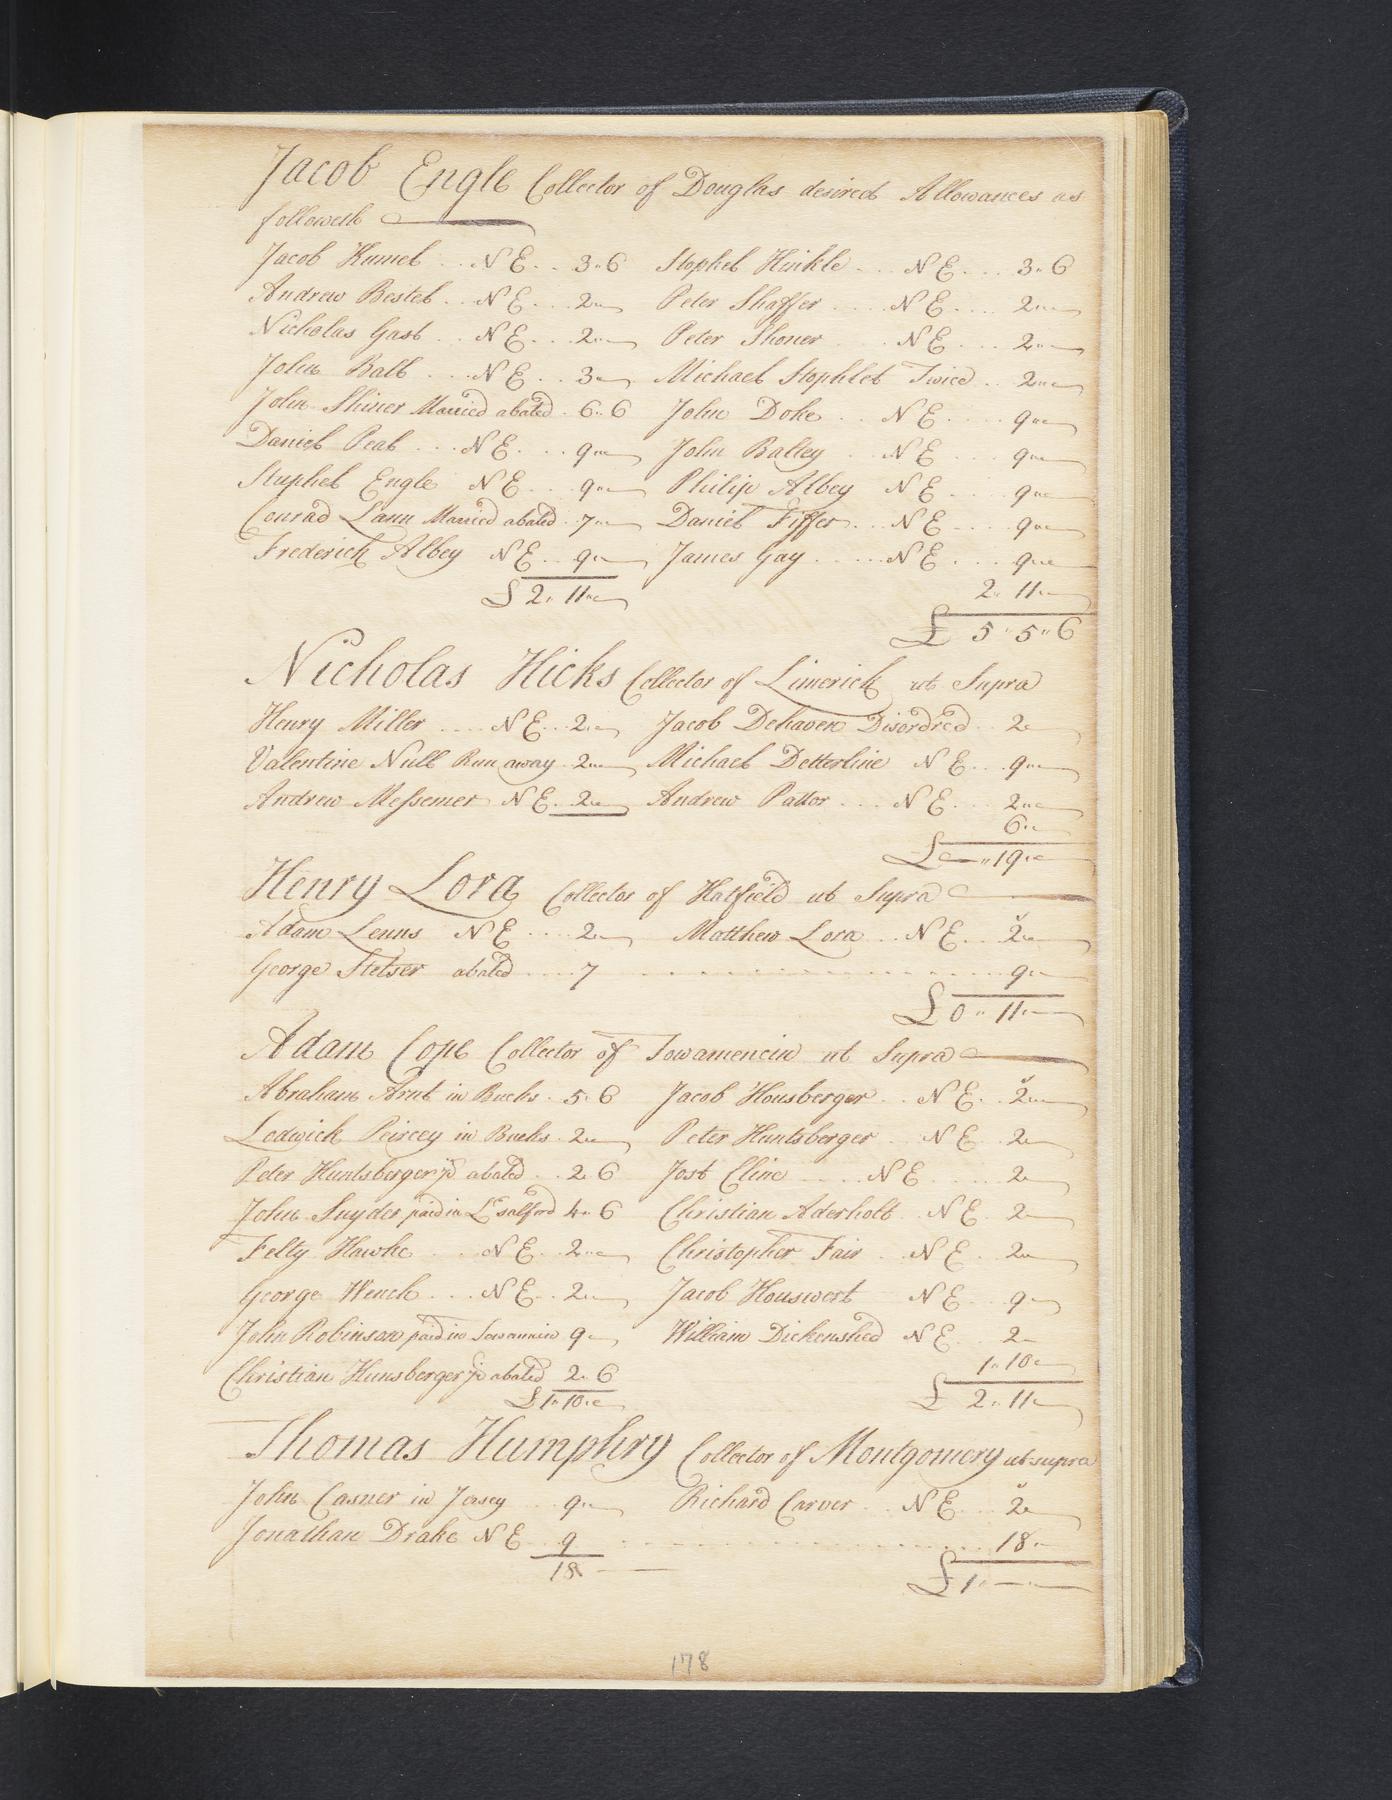 Jacob Engle Collector of Douglas desired Allowances as
followeth
Jacob Humel .. N E .. 3..6 Stophel Hinkle ... N E ... 3..6
Andrew Bestel .. N E ... 2.. Peter Shaffer .... N E .... 2..
Nicholas Gast .. N E ... 2.. Peter Shoner .... N E .... 2..
John Balt ... N E .. 3.. Michael Stophlet Twice .. 2..
John Shiner Married abated . 6..6 John Doke .. N E .... 9..
Daniel Peal ... N E ... 9.. John Baltey .. N E ... 9..
Stuphel Engle N E ... 9.. Philip Albey N E ... 9..
Conrad Lann Married abated . 7.. Daniel Fiffer ... N E .... 9..
Frederick Albey N E .. 9.. James Gay ..... N E ... 9..
£ 2.. 11.. 2.. 11..
£ 5..5..6
Nicholas Hicks Collector of Limerick ut Supra
Henry Miller .... N E .. 2.. Jacob Dehaven Disordred .. 2
Valentine Null Run away . 2.. Michael Detterline N E ... 9..
Andrew Messemer N E . 2.. Andrew Pattor ... N E ... 2..
6..
£ .. 19..
Henry Lora Collector of Hatfield ut Supra
Adam Lenns N E .... 2.. Matthew Lora .. N E ... 2..
George Stelser abated .... 7 .................... 9..
£ 0 .. 11..
Adam Cope Collector of Towamencin ut Supra
Abraham Arnt in Bucks . 5..6 Jacob Housberger .. N E .. 2..
Lodwick Peircey in Bucks . 2.. Peter Huntsberger .. N E . 2..
Peter Huntsberger jr abated .. 2..6 Jost Cline .... N E ..... 2..
John Snyder paid in Lr Salford 4..6 Christian Aderholt . N E . 2..
Felty Hawke ... N E .. 2.. Christopher Fair .. N E . 2..
George Wench ... N E .. 2.. Jacob Houswert N E ... 9..
John Robinson paid in 9.. William Dickenshed N E .. 2..
Christian Hunsberger jr abated 2..6 1.. 10..
£ 1.. 10.. £ 2.. 11..
Thomas Humphry Collector of Montgomery ut supra
John Casner in Jersey ... 9.. Richard Carver .. N E ... 2..
Jonathan Drake N E .. 9 .................... 18..
18 £ 1..
178